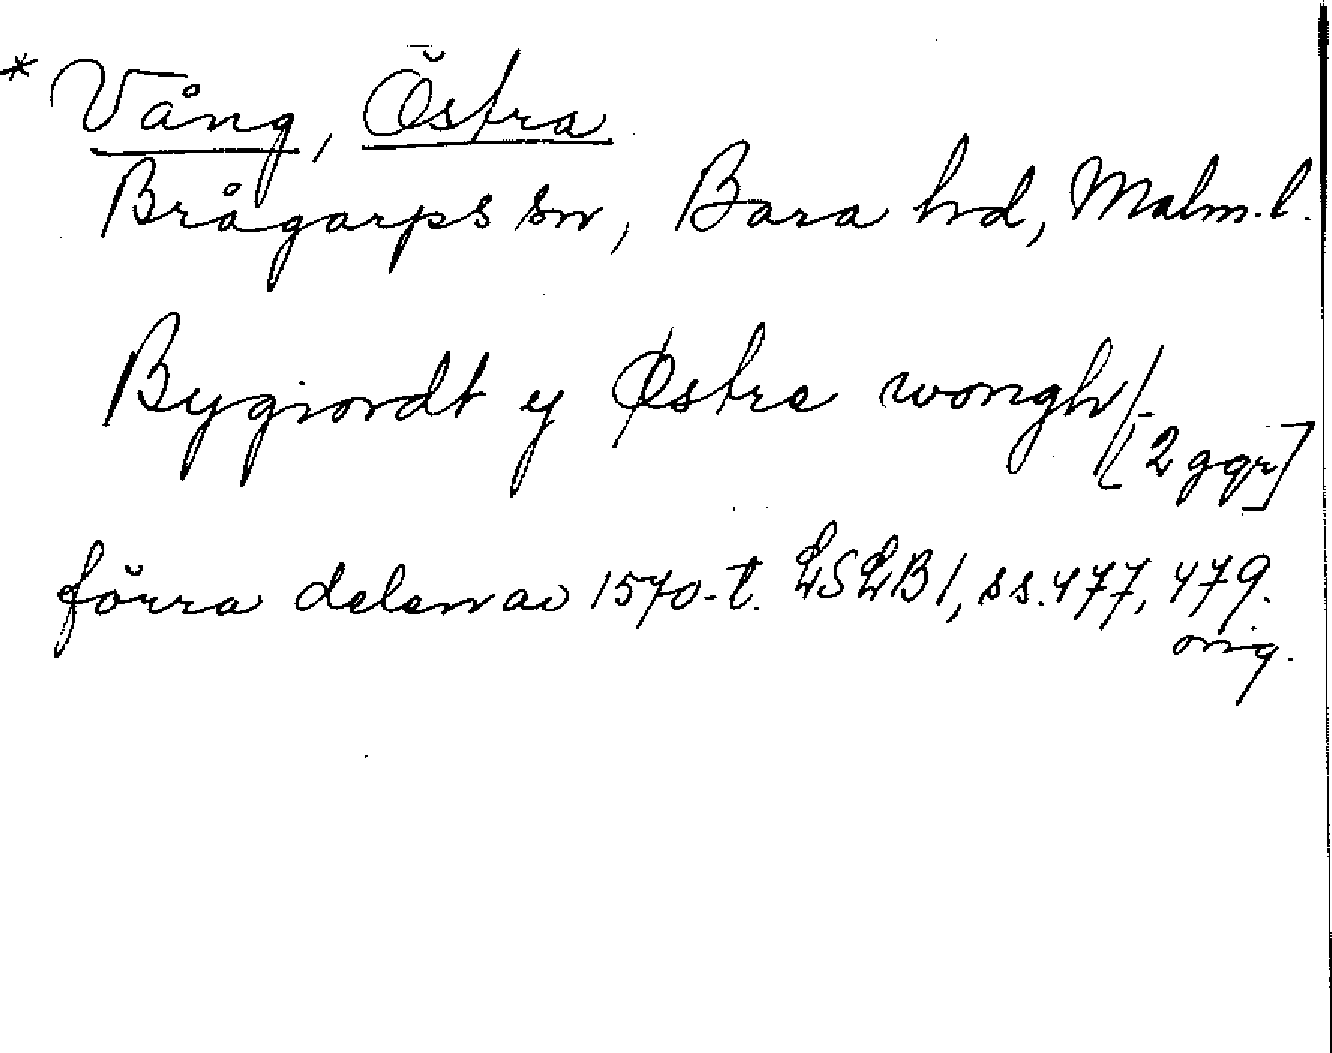 * Vång, Östra
Brågarps sn, Bara hd, Malm.l.
Bygiordt y Østre wongh/.
[2 ggr]
förra delen av 1570-t. LSLB 1, ss. 477, 479.
orig.